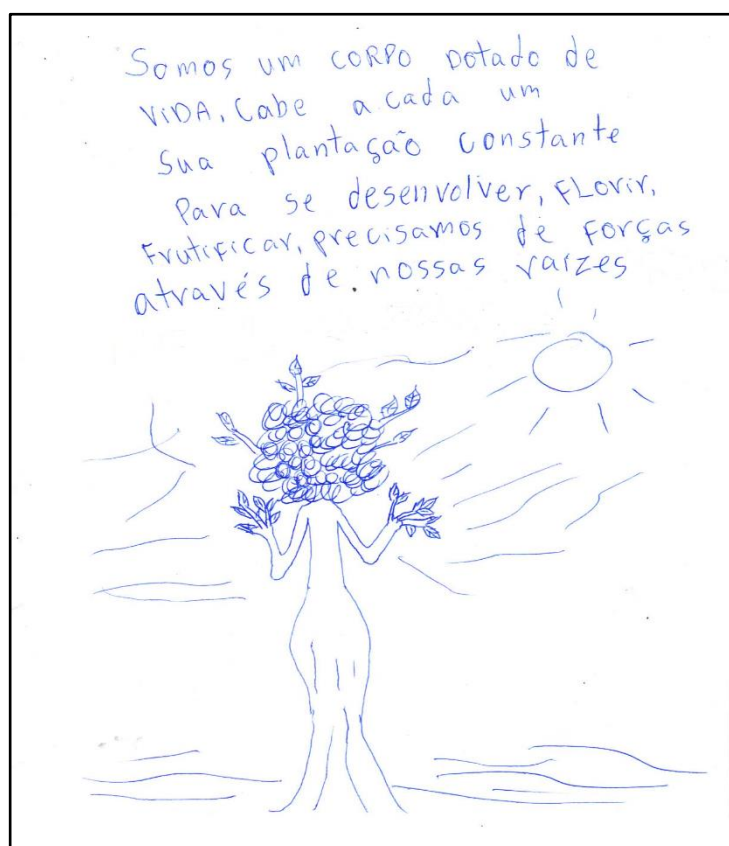 Somos um CORPO DOTADO de
VIDA. Cabe a cada um
Sua plantação constante
Para se desenvolver, FLorir,
Frutificar, precisamos de Forças
através de nossas raízes